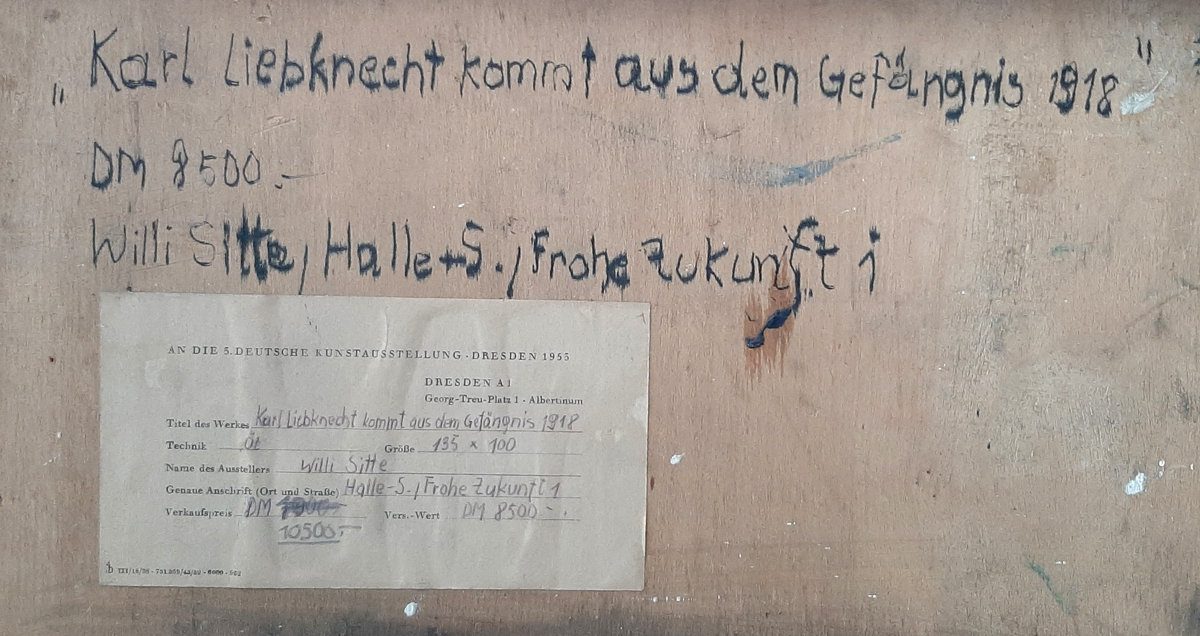 „Karl Liebknecht kommt aus dem Gefängnis 1918"
DM 8500.-
Willi Sitte, Halle-S./Frohe Zukunft 1
AN DIE 3. DEUTSCHE KUNSTAUSSTELLUNG · DRESDEN 1953
DRESDEN A 1
Georg-Treu-Platz 1 · Albertinum
Titel des Werkes Karl Liebknecht kommt aus dem Gefängnis 1918
Technik Öl Größe 135 x 100
Name des Ausstellers Willi Sitte
Genaue Anschrift (Ort und Straße) Halle-S./Frohe Zukunft 1
Verkaufspreis DM Vers.-Wert DM 8500.-
10500.-